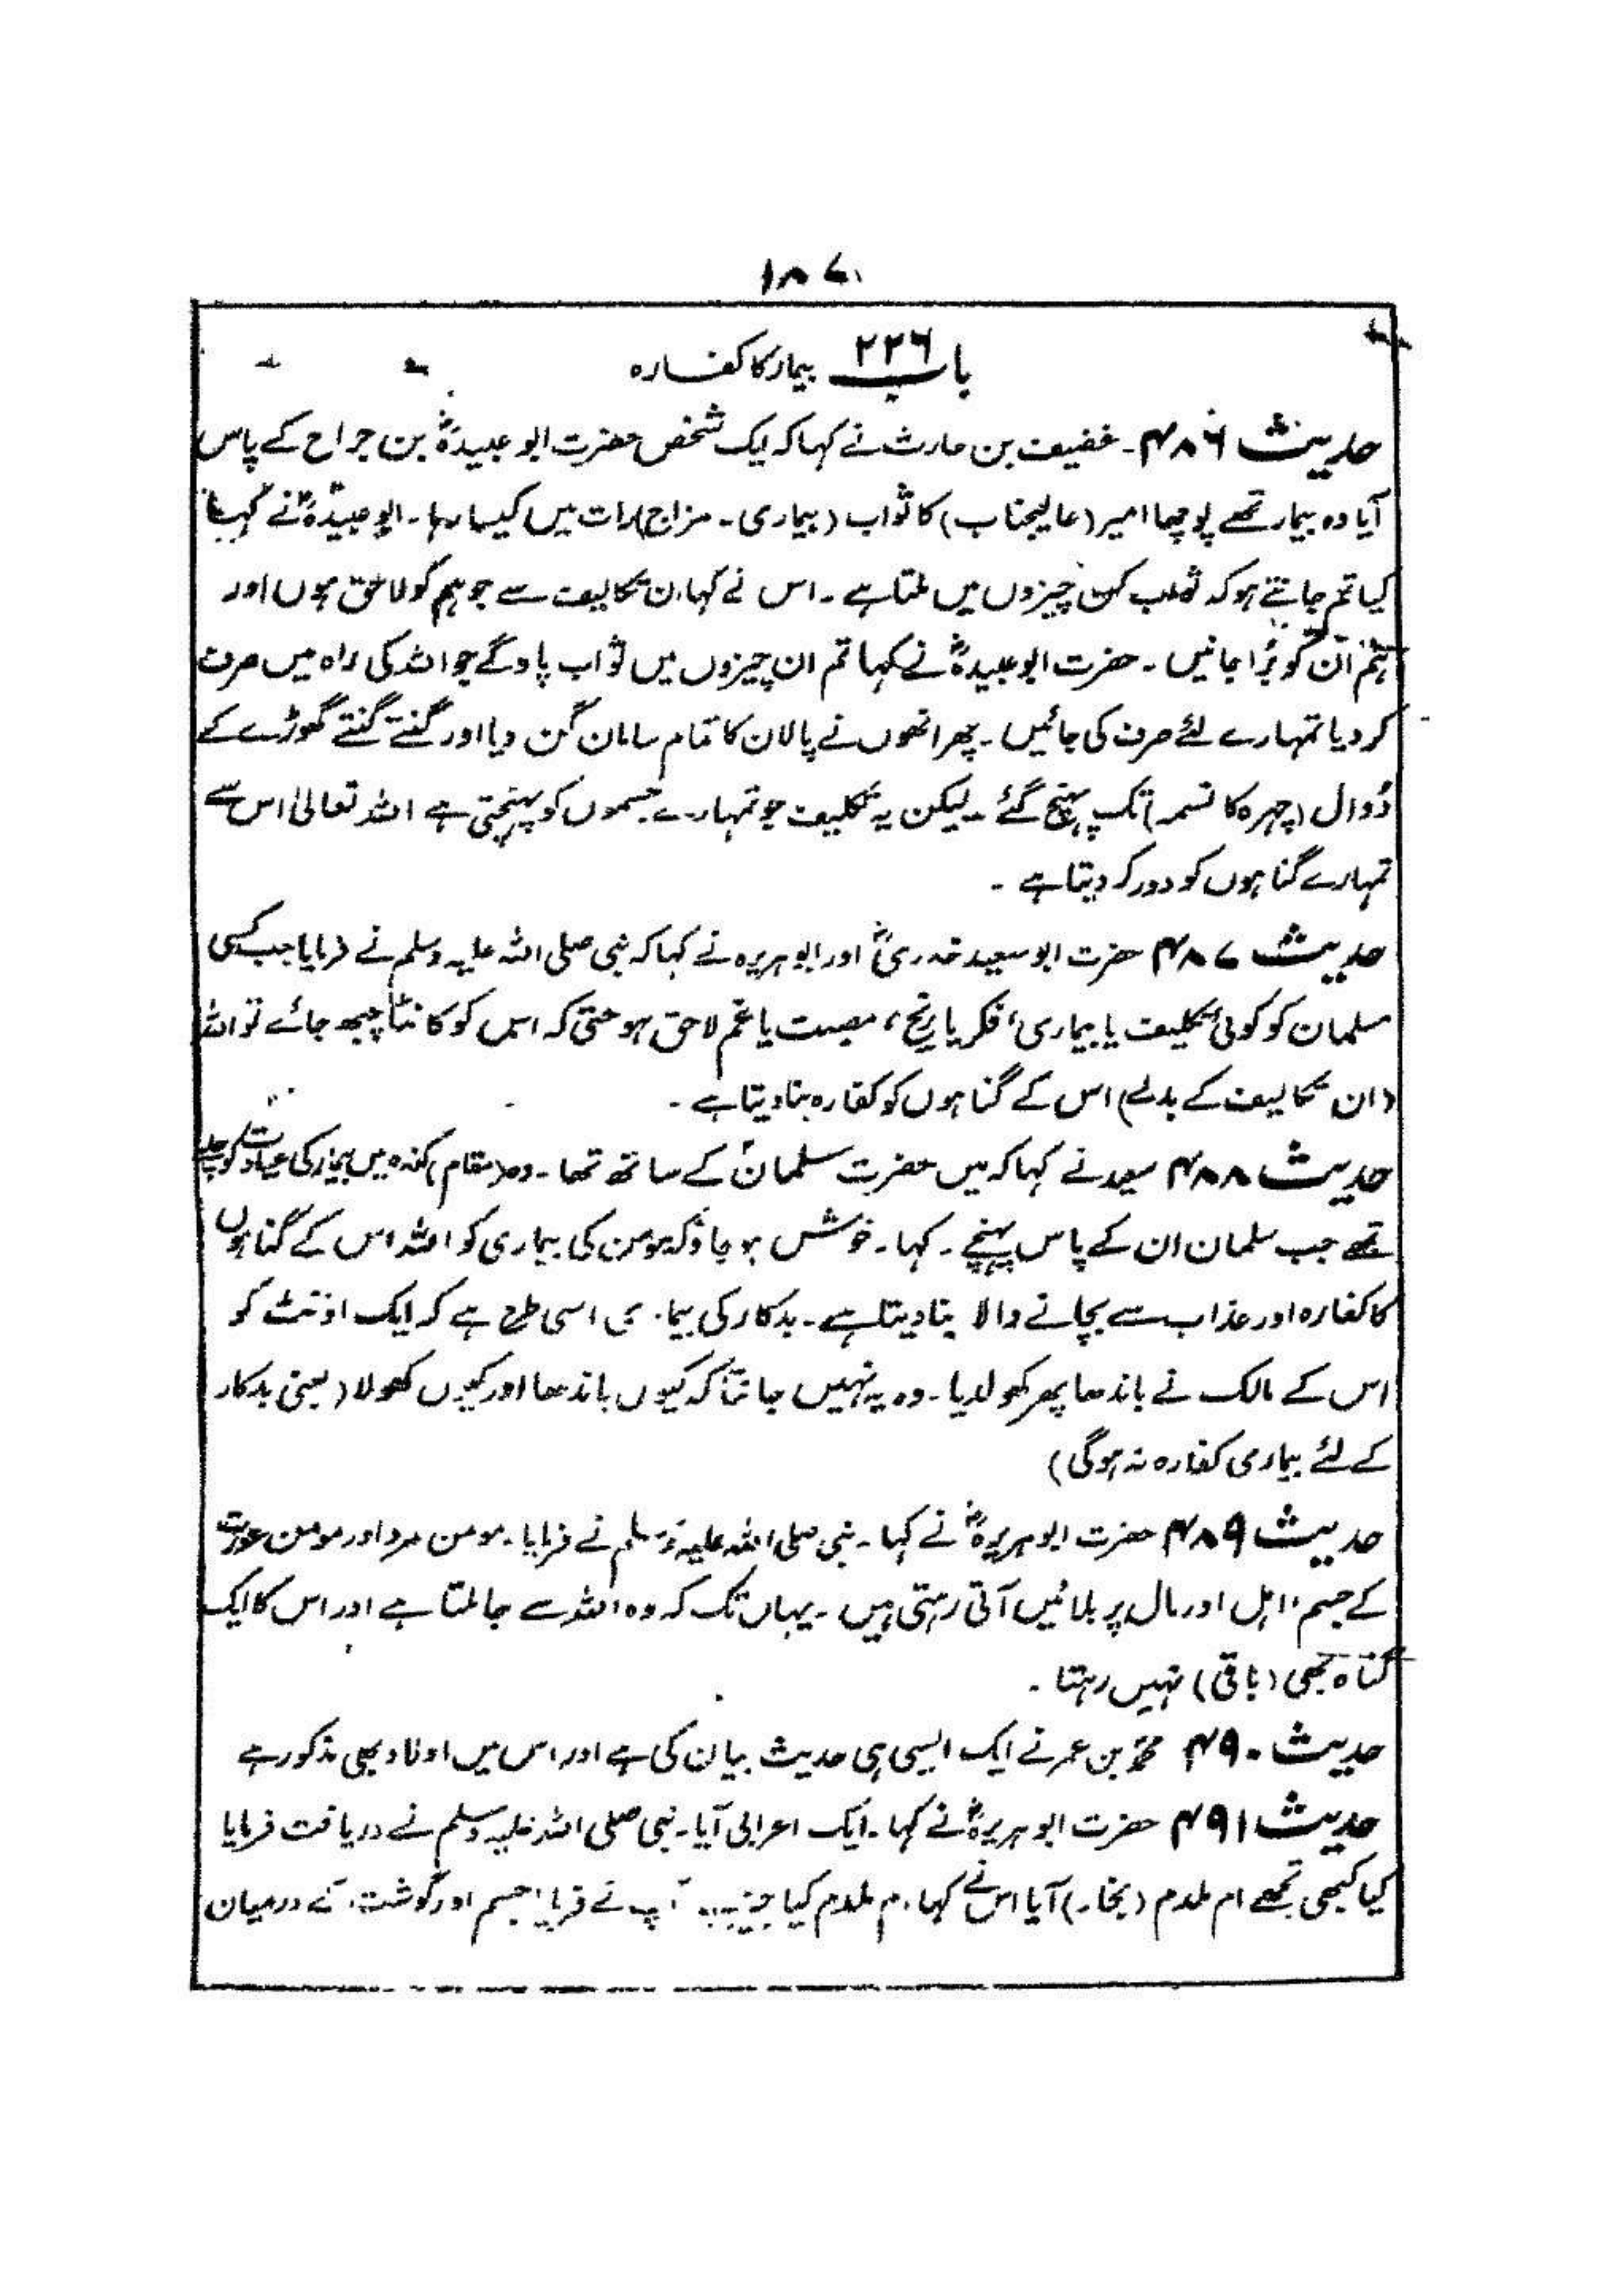 ۱۸۷
باب ۲۲۶ بیمار کا کفارہ
حدیث ۴۸۶۔ غضیف بن حارث نے کہا کہ ایک شخص حضرت ابو عبیدہؓ بن جراح کے پاس
آیا وہ بیمار تھے پوچھا امیر (عالیجناب) کا ثواب (بیماری۔ مزاج) رات میں کیسا رہا۔ ابو عبیدہؓ نے کہا
کیا تم جانتے ہو کہ ثواب کن چیزوں میں ملتا ہے۔ اس نے کہا ان تکالیف سے جو ہم کو لاحق ہوں اور
ہم ان کو بُرا جانیں۔ حضرت ابو عبیدہؓ نے کہا تم ان چیزوں میں ثواب پاوگے جو اللہ کی راہ میں صرف
کر دیا تمہارے لئے صرف کی جائیں۔ پھر انھوں نے پالان کا تمام سامان گن دیا اور گنتے گنتے گھوڑے کے
دُوال (چہرہ کا تسمہ) تک پہنچ گئے۔ لیکن یہ تکلیف جو تمہارے جسموں کو پہنچتی ہے اللہ تعالیٰ اس سے
تمہارے گناہوں کو دور کر دیتا ہے ۔
حدیث ۴۸۷ حضرت ابو سعید خدریؓ اور ابو ہریرہ نے کہا کہ نبی صلی اللہ علیہ وسلم نے فرمایا جب کسی
مسلمان کو کوئی تکلیف یا بیماری، فکر یا رنج، مصیبت یا غم لاحق ہو حتیٰ کہ اس کو کانٹا چبھ جائے تو اللہ
(ان تکالیف کے بدلے) اس کے گناہوں کو کفارہ بنا دیتا ہے ۔
حدیث ۴۸۸ سعید نے کہا کہ میں حضرت سلمانؓ کے ساتھ تھا۔ وہ (مقام) کندہ میں بیمار کی عیادت کو چلے
تھے جب سلمان ان کے پاس پہنچے۔ کہا۔ خوش ہو جاؤ کہ مومن کی بیماری کو اللہ اس کے گناہوں
کا کفارہ اور عذاب سے بچانے والا بنا دیتا ہے۔ بدکار کی بیماری اسی طرح ہے کہ ایک اونٹ کو
اس کے مالک نے باندھا پھر کھولدیا۔ وہ یہ نہیں جانتا کہ کیوں باندھا اور کیوں کھولا (یعنی بدکار
کے لئے بیماری کفارہ نہ ہوگی)
حدیث ۴۸۹ حضرت ابو ہریرہؓ نے کہا۔ نبی صلی اللہ علیہ وسلم نے فرمایا۔ مومن مرد اور مومن عورت
کے جسم، اہل اور مال پر بلائیں آتی رہتی ہیں۔ یہاں تک کہ وہ اللہ سے جا ملتا ہے اور اس کا ایک
گناہ بھی (باقی) نہیں رہتا ۔
حدیث ۴۹۰ محمدؐ بن عمر نے ایک ایسی ہی حدیث بیان کی ہے اور اس میں اولاد بھی مذکور ہے
حدیث ۴۹۱ حضرت ابو ہریرہؓ نے کہا۔ ایک اعرابی آیا۔ نبی صلی اللہ علیہ وسلم نے دریافت فرمایا
کیا کبھی تجھے ام ملدم (بخار) آیا اس نے کہا ام ملدم کیا آپ نے فرمایا جسم اور گوشت کے درمیان